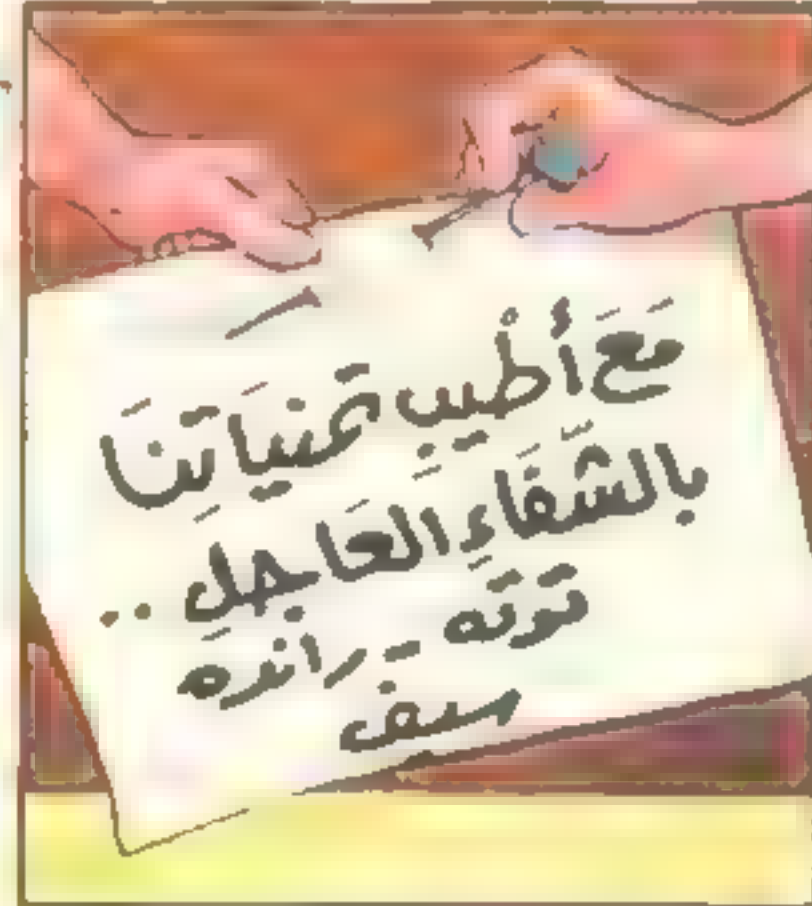 مَعَ أطْيبِ تمنياتَنَا
بالشّفَاءِ العَاجلِ ..
توته - رانده
سيف